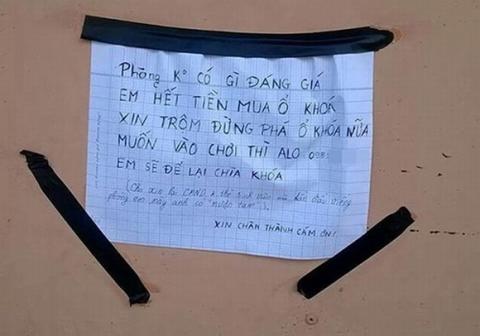 Phòng Kº CÓ GÌ ĐÁNG GIÁ
EM HẾT TIỀN MUA Ổ KHOÁ
XIN TRỘM ĐỪNG PHÁ Ổ KHÓA NỮA
MUỐN VÀO CHƠI THÌ ALO 098
EM SẼ ĐỂ LẠI CHÌA KHÓA
(Cho xin lại CMND & thẻ sinh viên
phòng em mấy anh có "mượn tạm").
XIN CHÂN THÀNH CẢM ƠN!